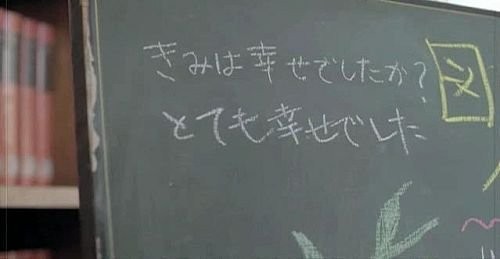 きみは幸せでしたか?
とても幸せでした